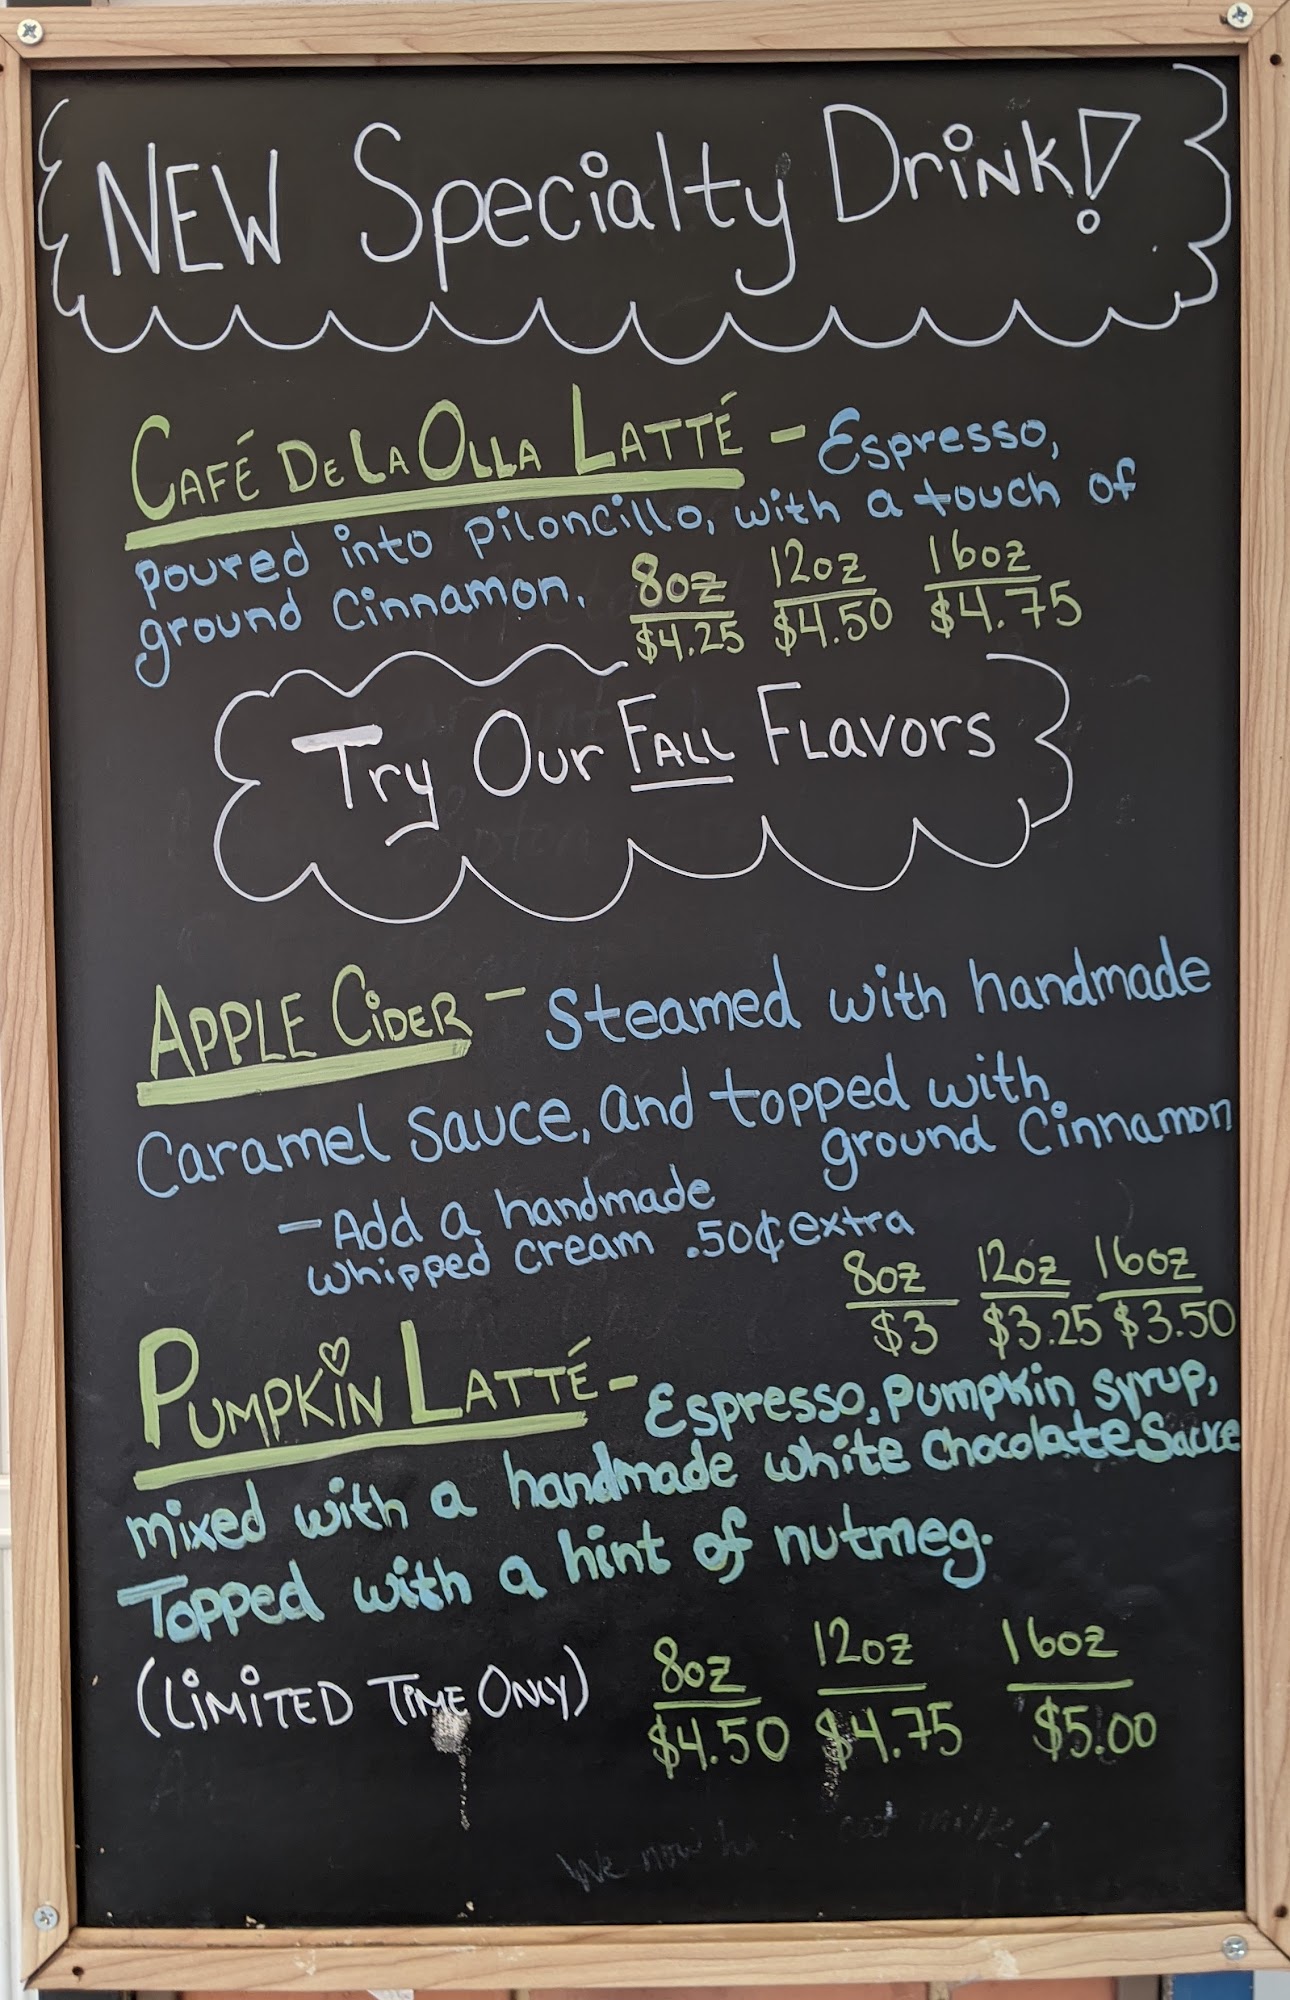 NEW Specialty Drink!
CAFÉ DE LA OLLA LATTÉ - Espresso,
poured into piloncillo, with a touch of
ground Cinnamon.
8oz 12oz 16oz
$4.25 $4.50 $4.75
Try Our FALL Flavors
APPLE CIDER - Steamed with handmade
Caramel sauce, and topped with
ground Cinnamon
- Add a handmade
whipped cream .50¢ extra
8oz 12oz 16oz
$3 $3.25 $3.50
PUMPKIN LATTÉ - Espresso, pumpkin syrup,
mixed with a handmade white chocolate Sauce
Topped with a hint of nutmeg.
(LIMITED TIME ONLY)
8oz 12oz 16oz
$4.50 $4.75 $5.00
We now milk!